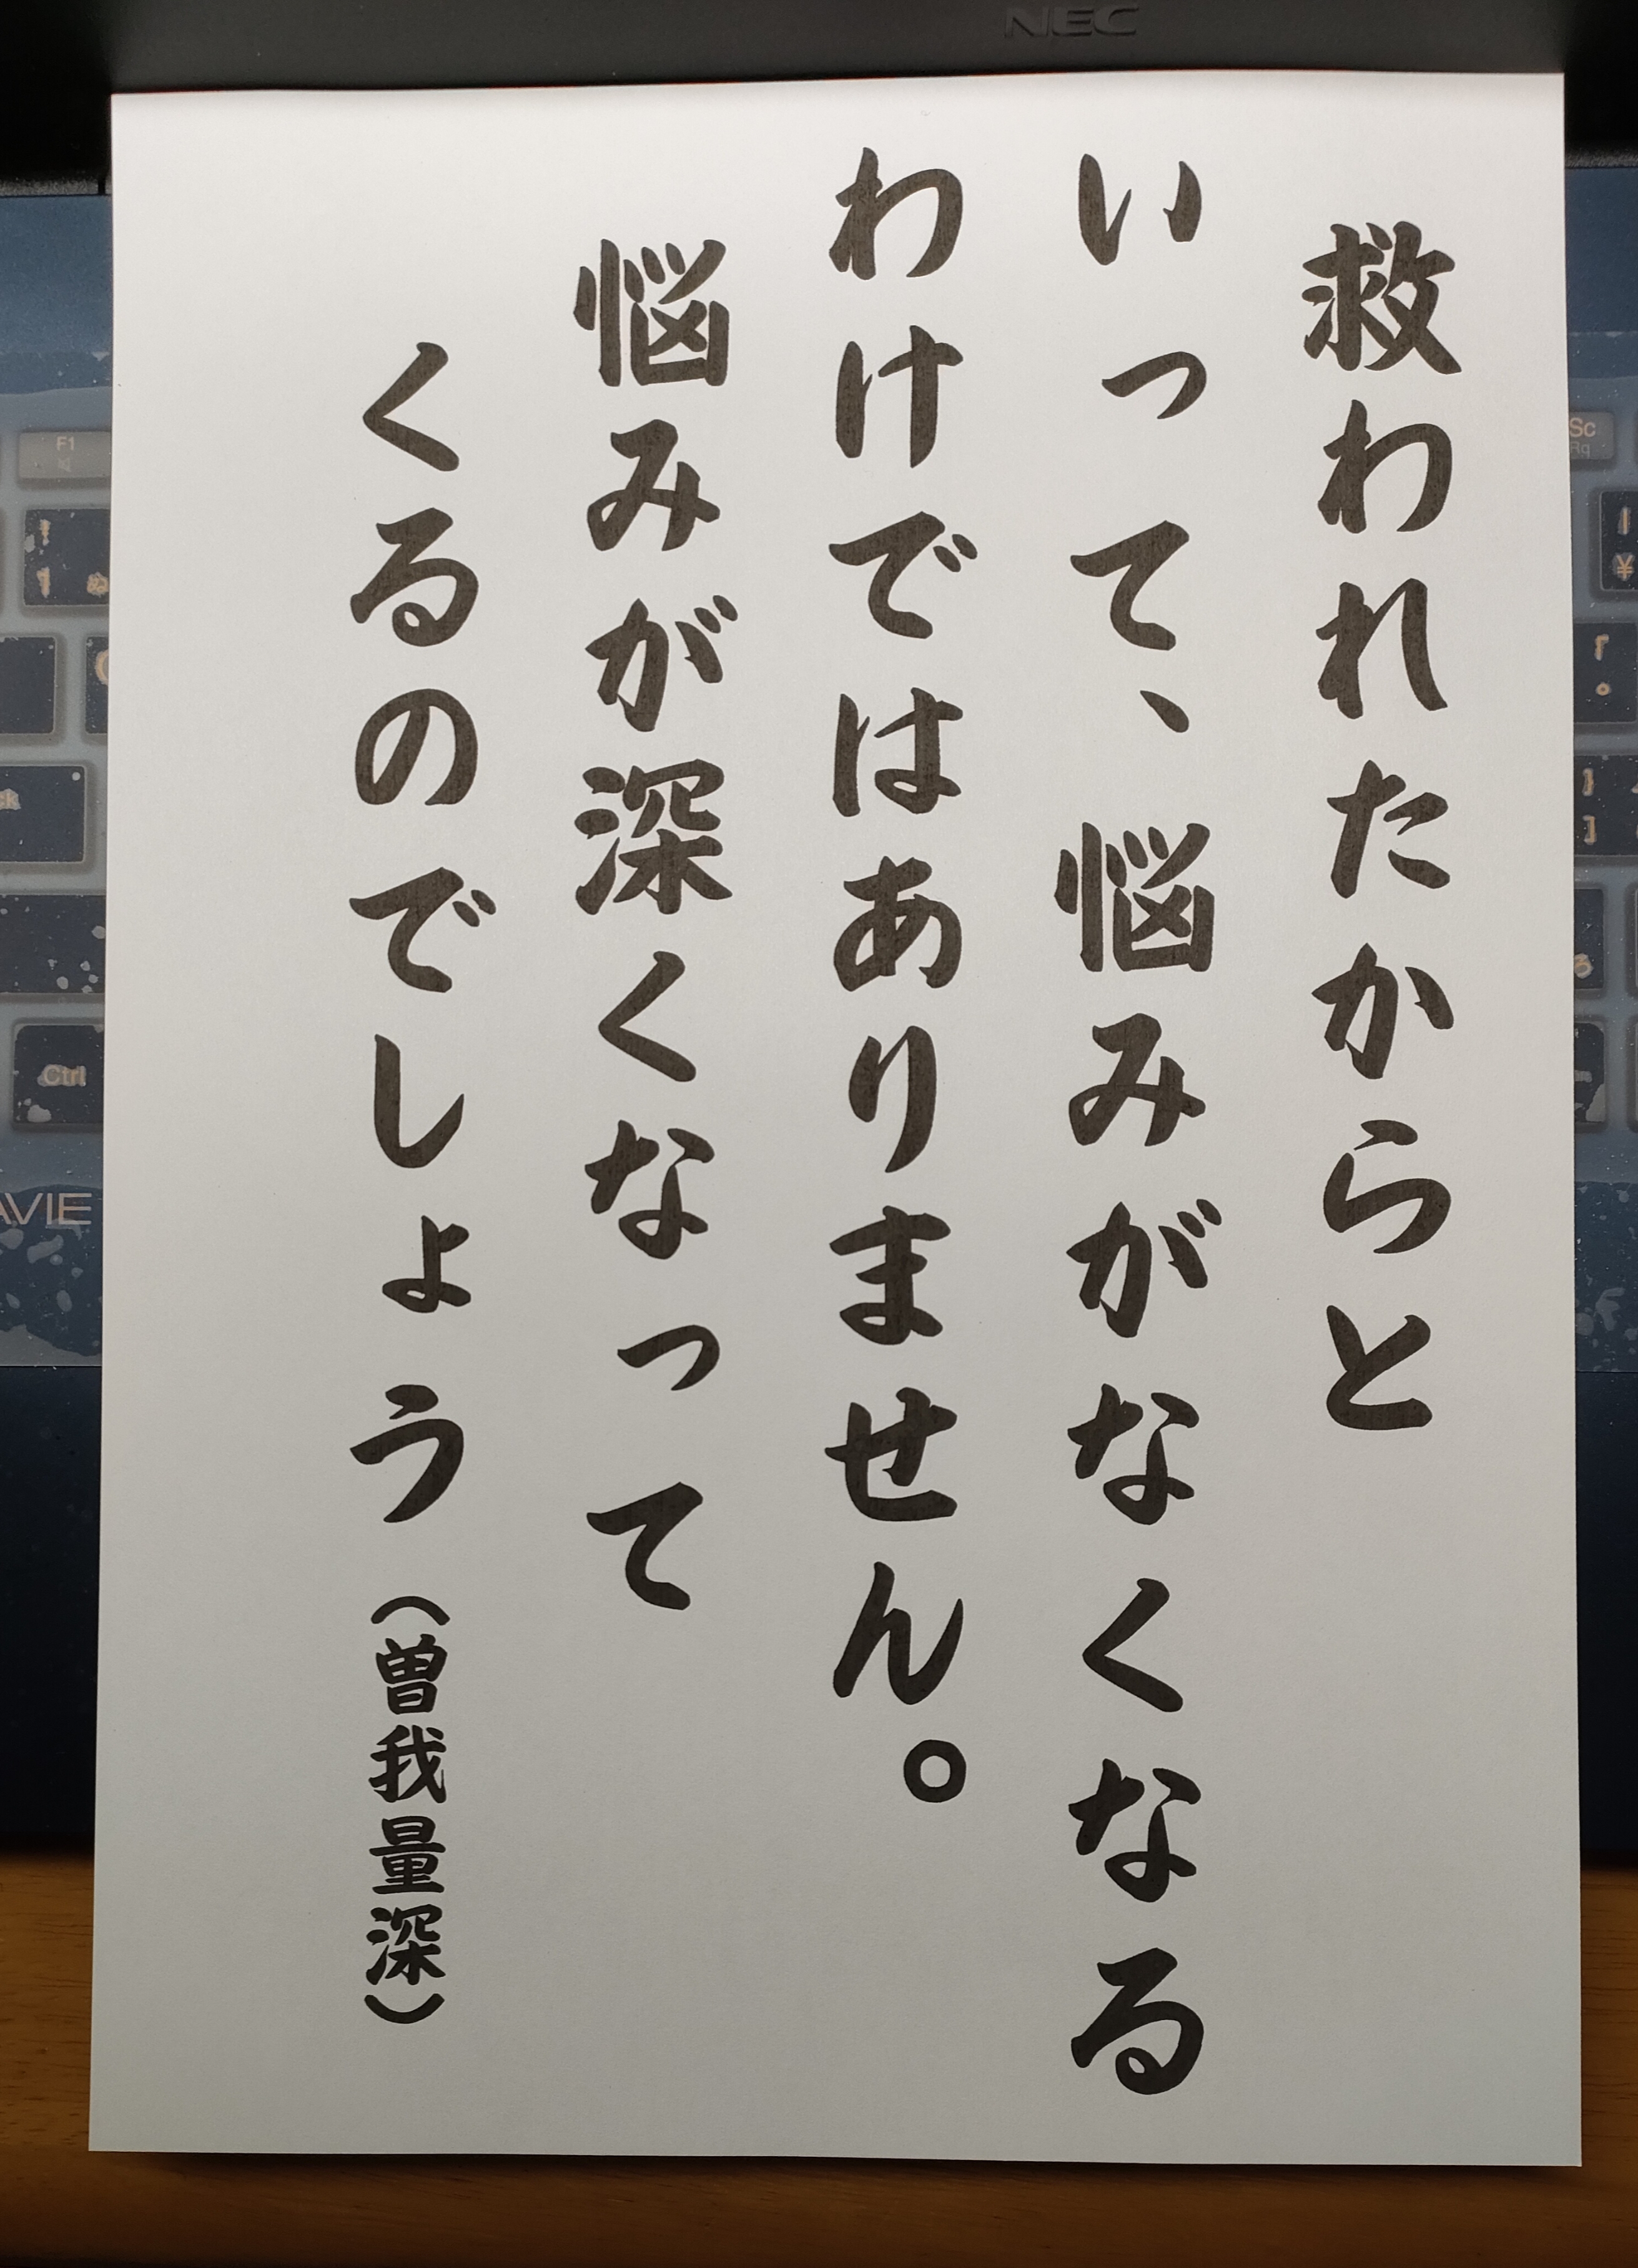 NEC
救われたからと
いって、悩みがなくなる
わけではありません。
悩みが深くなって
くるのでしょう（曽我量深）
F1
Ctrl
AVIE